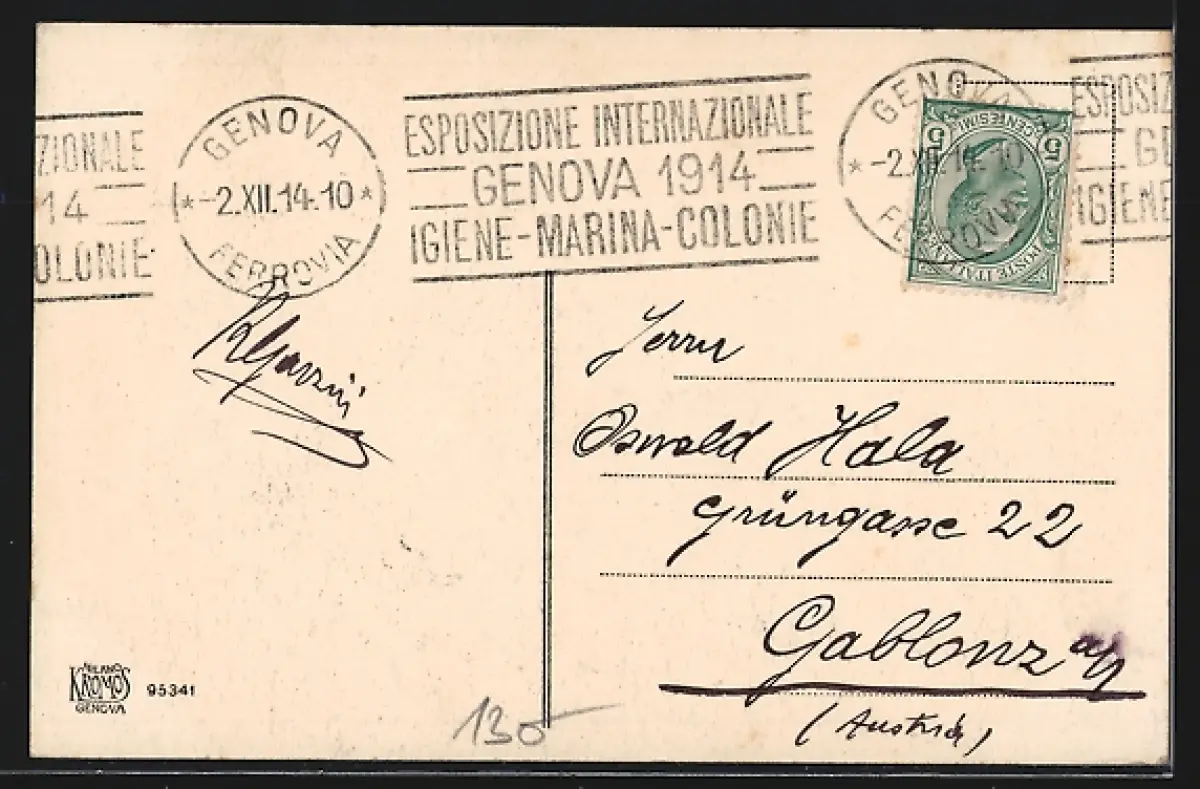 ZIONALE
14
OLONIE
GENOVA
*-2.XII.14.10*
FERROVIA
ESPOSIZIONE INTERNAZIONALE
GENOVA 1914
IGIENE-MARINA-COLONIE
GENOVA
*-2.XII.14.10
FERROVIA
5 CENTESIMI 5
POSTE ITALIANE
ESPOSIZ
GE
IGIENE
Herrn
Oswald Hala
Grüngasse 22
Gablonz a/N
(Austria)
MILANO
KROMOS
GENOVA
95341
130